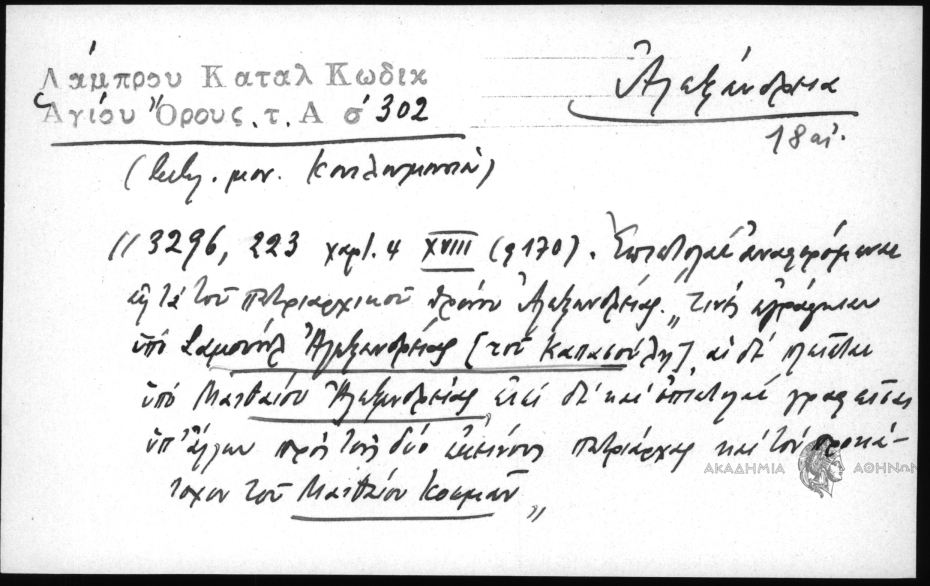 Λάμπρου Καταλ Κωδικ
Ἁγίου Ὄρους. τ. Α σ 302
Ἀλεξάνδρεια
18 αἰ.
(Βιβλ. μον. Κουτλουμουσίου)
// 3296, 223 χαρτ. 4 XVIII (φ 170). Ἐπιστολαὶ ἀναφερόμεναι
εἰς τὰ τοῦ πατριαρχικοῦ θρόνου Ἀλεξανδρείας. "τινὲς ἐγράφησαν
ὑπὸ Σαμουὴλ Ἀλεξανδρείας [τοῦ Καπασούλη], αἱ δὲ πλεῖσται
ὑπὸ Ματθαίου Ἀλεξανδρείας, εἰσὶ δὲ καὶ ἐπιστολαὶ γραφεῖσαι
ὑπ' ἄλλων πρὸς τοὺς δύο ἐκείνους πατριάρχας καὶ τὸν προκά-
τοχον τοῦ Ματθαίου Κοσμᾶν"
ΑΚΑΔΗΜΙΑ ΑΘΗΝΩΝ